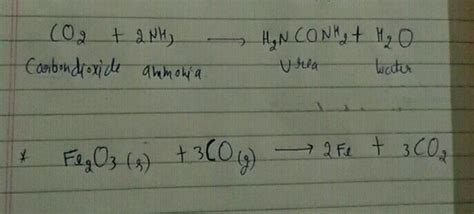 CO2 + 2NH3 → H2NCONH2 + H2O
Carbondioxide ammonia Urea Water
* Fe2O3(s) + 3CO(g) → 2Fe + 3CO2